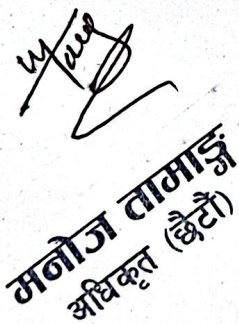 मनोज तामाङ्ग
अधिकृत (छैटौं)